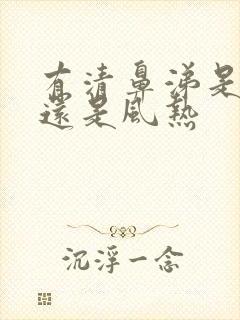 有清鼻涕是
還是風熱
沉浮一念